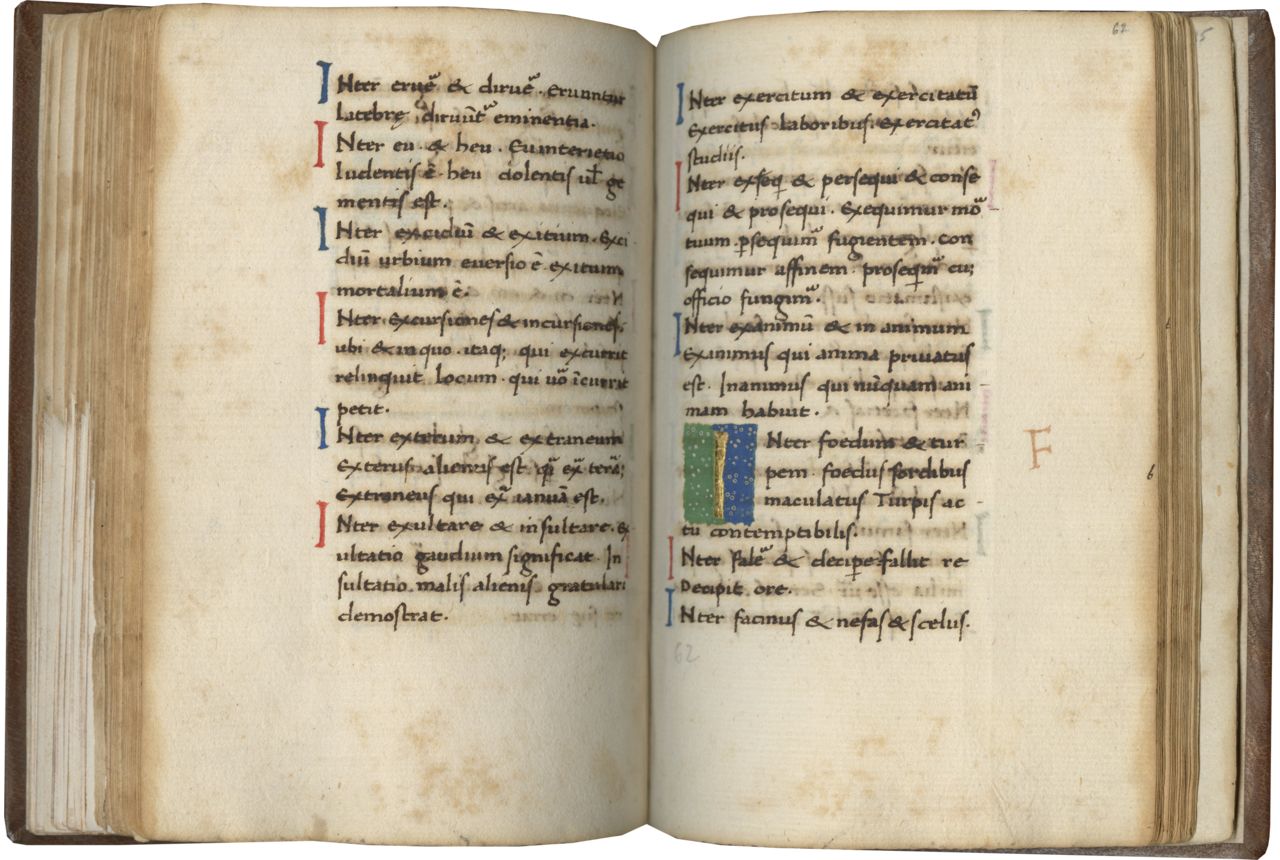 INter eruẽ & diruẽ. Eruuntur
latebrę diruũt᷑ eminentia.
INter eu & heu. Eu interietio
ludentis ẽ. heu dolentis ul̃ ge
mentis est.
INter excidiũ & exitium. Exci
diũ urbium euersio ẽ. exitium
mortalium ẽ.
INter Excursiones & incursiones.
ubi & in quo. itaq; qui excurrit
relinquit locum. qui uõ ĩcurrit
petit.
INter exterum & extraneum
Exterus alienus est. q̃ ex̃ terã;
Extraneus qui ex̃ ianuã est.
INter exultare & insultare. Ex
ultatio gaudium significat. In
sultatio malis alienis gratulari
demostrat.
62
INter exercitum & exercitatũ
Exercitus laboribus. Exercitatꝰ
studiis.
INter exseq̃ & persequi & conse
qui & prosequi. Exequimur mõ
tuum. ꝑsequim᷑ fugientem. con
sequimur affinem. proseq̃m᷑ cu;
officio fungim᷑.
INter exanimũ & in animum
Exanimus qui anima priuatus
est. Inanimus qui nũquam ani-
mam habuit.
INter foedum & tur-
pem. foedus sordibus
maculatus Turpis ac-
tu contemptibilis.
F
INter falẽ & deciꝑe. fallit re
Decipit ore.
INter facinus & nefas & scelus.
62